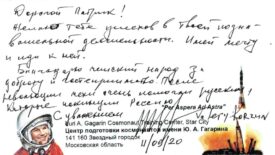 Дорогой Патрик!
Желаю тебе успехов в твоей позна-
вательной деятельности. Имей мечту
и иди к ней.
Благодарю чешский народ за
доброту и гостеприимство. После
революции чехи очень помогли русским,
которые покинули Россию.
С уважением
"Per Aspera Ad Astra"
Yuri A. Gagarin Cosmonaut Training Center, Star City
Центр подготовки космонавтов имени Ю. А. Гагарина
141 160 Звездный городок
Московская область
11/09/20